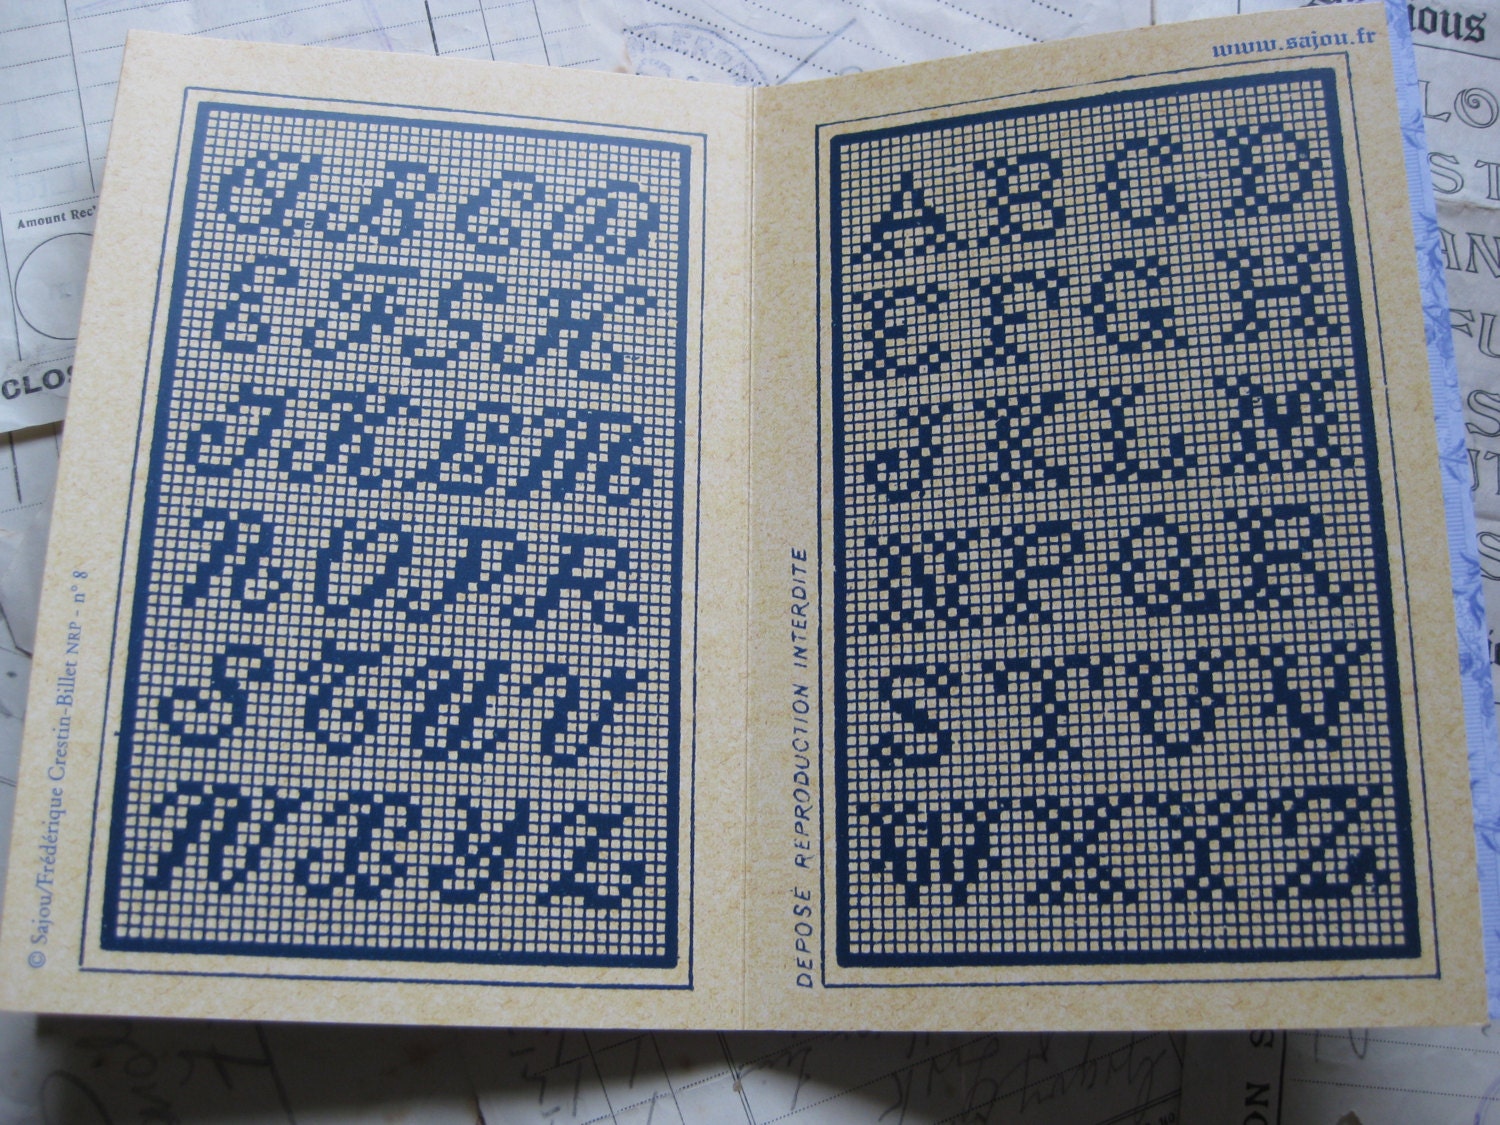 www.sajou.fr
A B C D
E F G H
J K L M
N O P R
S T U V
W X Y Z
© Sajou/Frédérique Crestin-Billet NRP - n° 8
A B C D
E F G H
J K L M
N P Q R
S T U V
W X Y Z
DEPOSÉ REPRODUCTION INTERDITE
Amount
CLOS